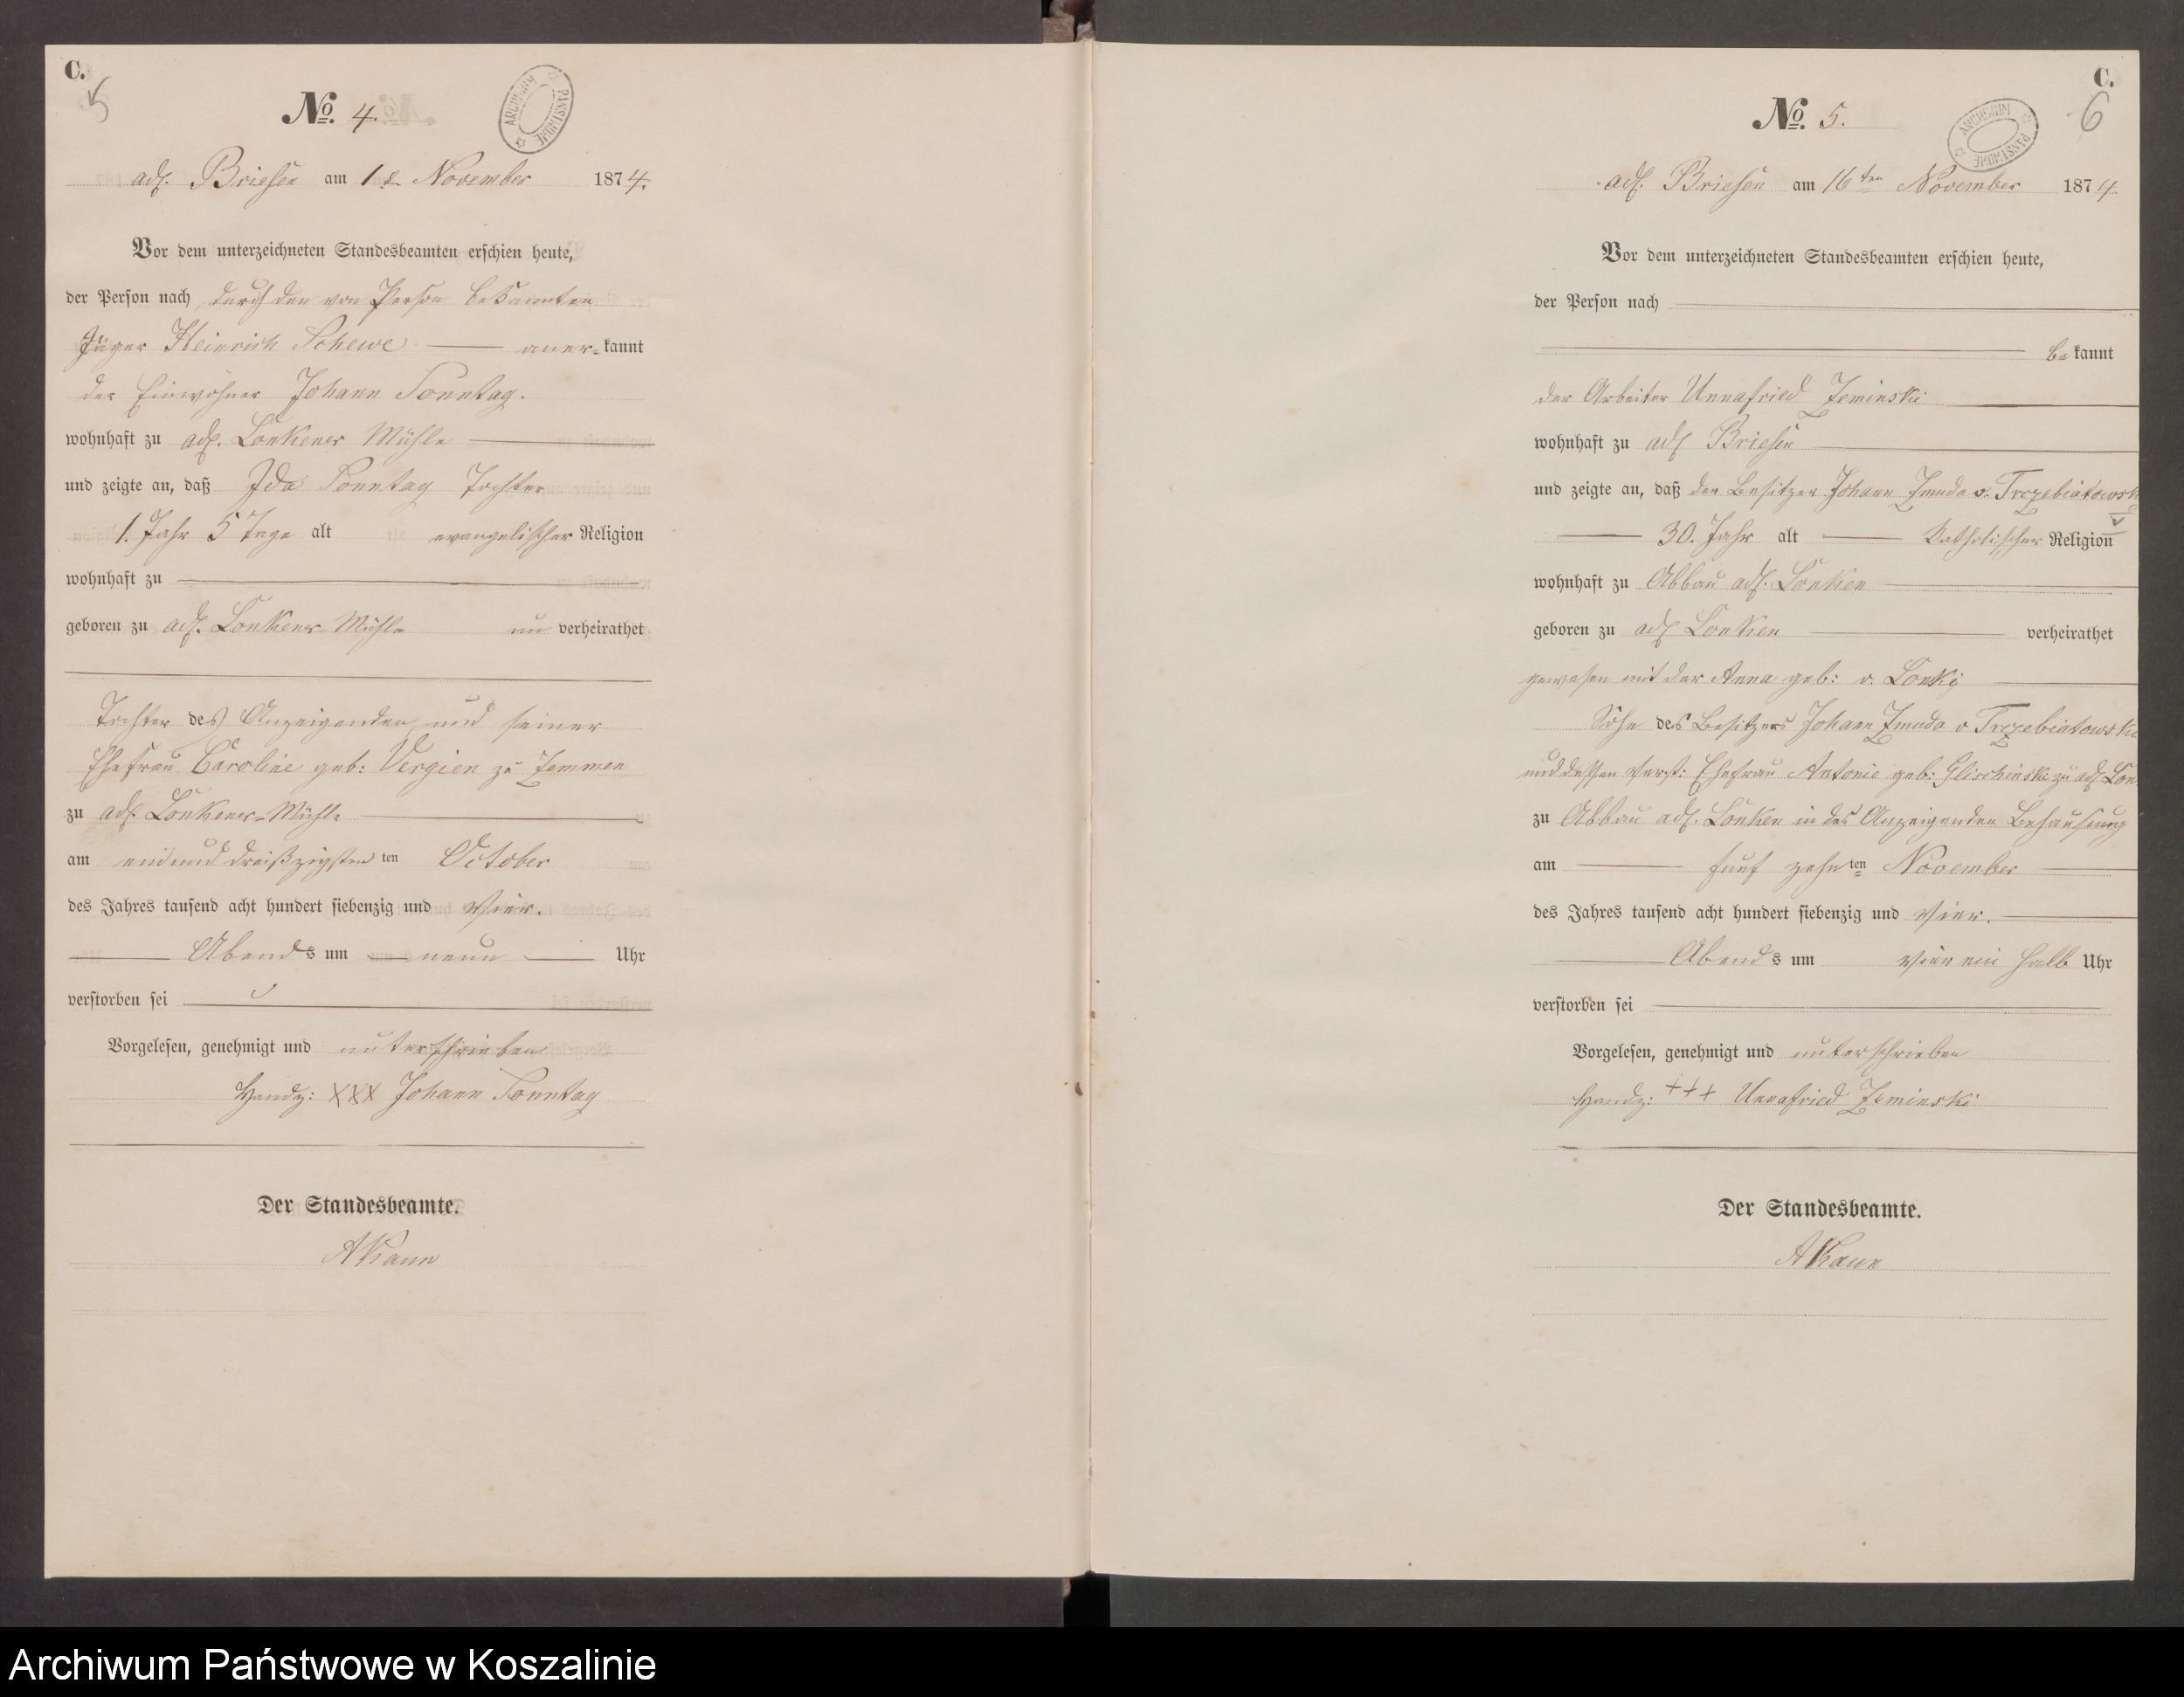 C.
5
No. 4.
ARCHIWUM PAŃSTWOWE
adl. Briesen am 1 November 1874.
Vor dem unterzeichneten Standesbeamten erschien heute,
der Person nach durch den von Person bekannten
Jäger Heinrich Schewe aner-kannt
der Einwohner Johann Sonntag.
wohnhaft zu adl. Lonkener Mühle
und zeigte an, daß Ida Sonntag Tochter
1. Jahr 5 Tage alt evangelischer Religion
wohnhaft zu
geboren zu adl. Lonkener Mühle un verheirathet
Tochter des Anzeigenden und seiner
Ehefrau Caroline geb: Vergien zu Zemmen
zu adl. Lonkener-Mühle
am einunddreißzigsten ten October
des Jahres tausend acht hundert siebenzig und vier.
Abends um neun Uhr
verstorben sei
Vorgelesen, genehmigt und unterschrieben
Handz: XXX Johann Sonntag
Der Standesbeamte.
AKaun
C.
6
No. 5.
ARCHIWUM PAŃSTWOWE
adl. Briesen am 16ten November 1874.
Vor dem unterzeichneten Standesbeamten erschien heute,
der Person nach
be kannt
der Arbeiter Unnafried Zeminski
wohnhaft zu adl Briesen
und zeigte an, daß der Besitzer Johann Zmuda v. Trzebiatowsk
30. Jahr alt katholischer Religion
wohnhaft zu Abbau adl. Lonken
geboren zu adl Lonken verheirathet
gewesen mit der Anna geb: v. Lonki
Sohn des Besitzers Johann Zmuda v Trzebiatowski
und dessen verst: Ehefrau Antonie geb: Glischinski zu adl. Lon
zu Abbau adl. Lonken in des Anzeigenden Behausung
am fünf zehnten November
des Jahres tausend acht hundert siebenzig und vier.
Abends um vier ein halb Uhr
verstorben sei
Vorgelesen, genehmigt und unterschrieben
Handz: +++ Unnafried Zeminski
Der Standesbeamte.
AKaun
Archiwum Państwowe w Koszalinie